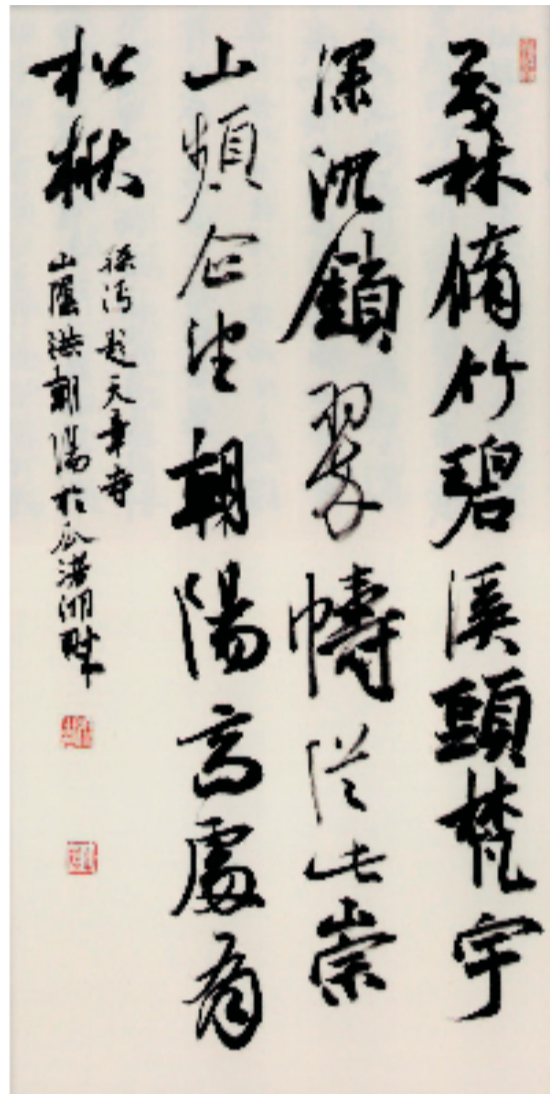 茂林脩竹碧溪頭梵宇
深沉鎖翠幬從此崇
山頻企望朝陽高處有
松楸
孫沔題天章寺
山陰洪朝陽於瓜渚湖畔